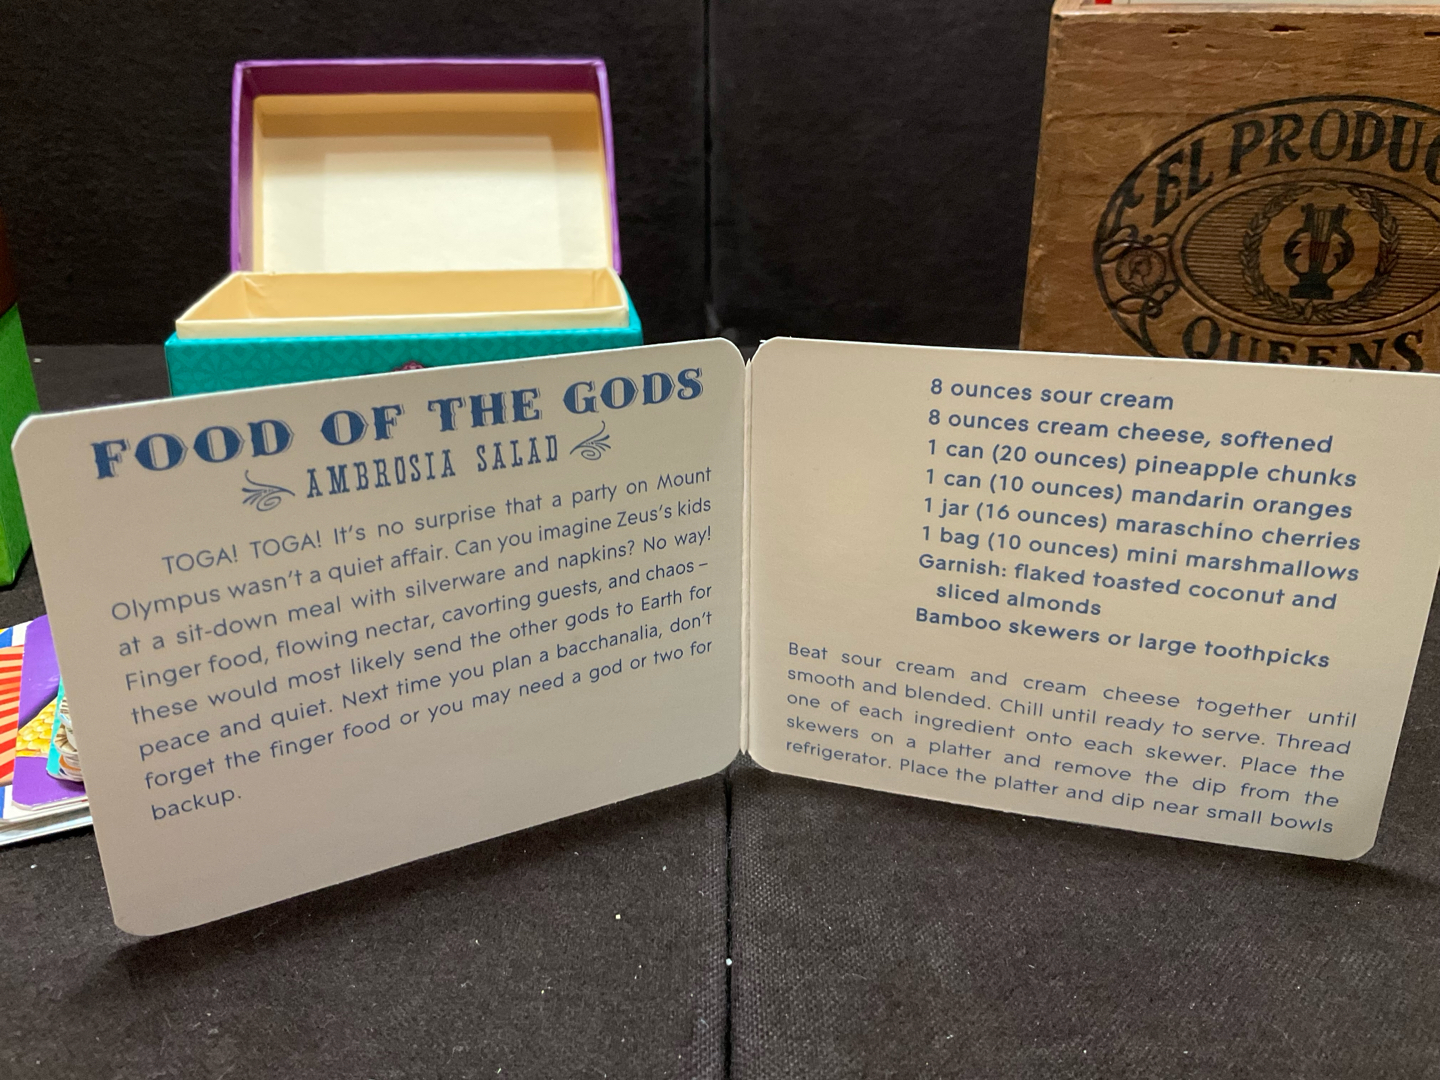 EL PRODUC
QUEENS
FOOD OF THE GODS
AMBROSIA SALAD
TOGA! TOGA! It's no surprise that a party on Mount
Olympus wasn't a quiet affair. Can you imagine Zeus's kids
at a sit-down meal with silverware and napkins? No way!
Finger food, flowing nectar, cavorting guests, and chaos –
these would most likely send the other gods to Earth for
peace and quiet. Next time you plan a bacchanalia, don't
forget the finger food or you may need a god or two for
backup.
8 ounces sour cream
8 ounces cream cheese, softened
1 can (20 ounces) pineapple chunks
1 can (10 ounces) mandarin oranges
1 jar (16 ounces) maraschino cherries
1 bag (10 ounces) mini marshmallows
Garnish: flaked toasted coconut and
sliced almonds
Bamboo skewers or large toothpicks
Beat sour cream and cream cheese together until
smooth and blended. Chill until ready to serve. Thread
one of each ingredient onto each skewer. Place the
skewers on a platter and remove the dip from the
refrigerator. Place the platter and dip near small bowls